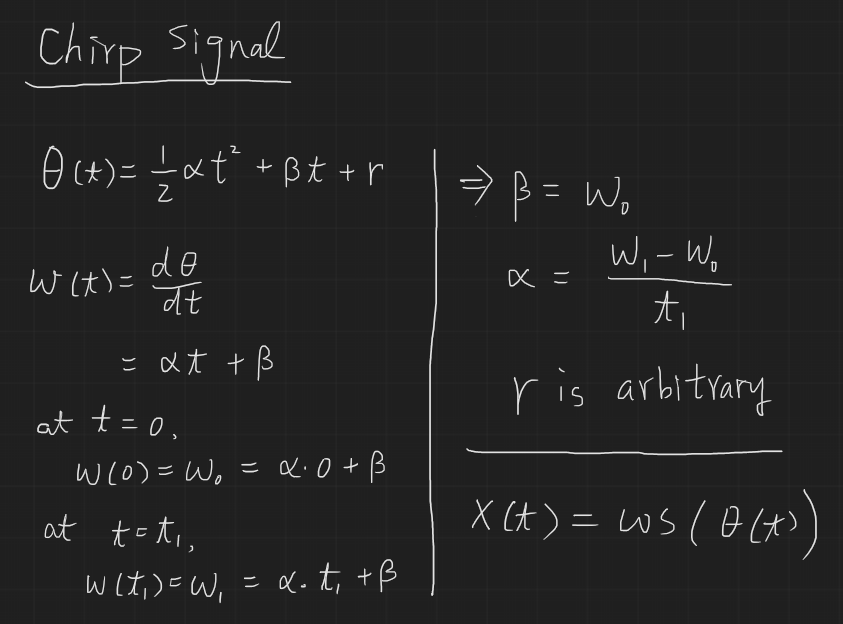 Chirp Signal
θ(t) = 1/2 αt² + βt + r
w(t) = dθ/dt
= αt + β
at t = 0,
w(0) = w₀ = α·0 + β
at t = t₁,
w(t₁) = w₁ = α·t₁ + β
⇒ β = w₀
α = (w₁ - w₀)/t₁
r is arbitrary
x(t) = cos(θ(t))